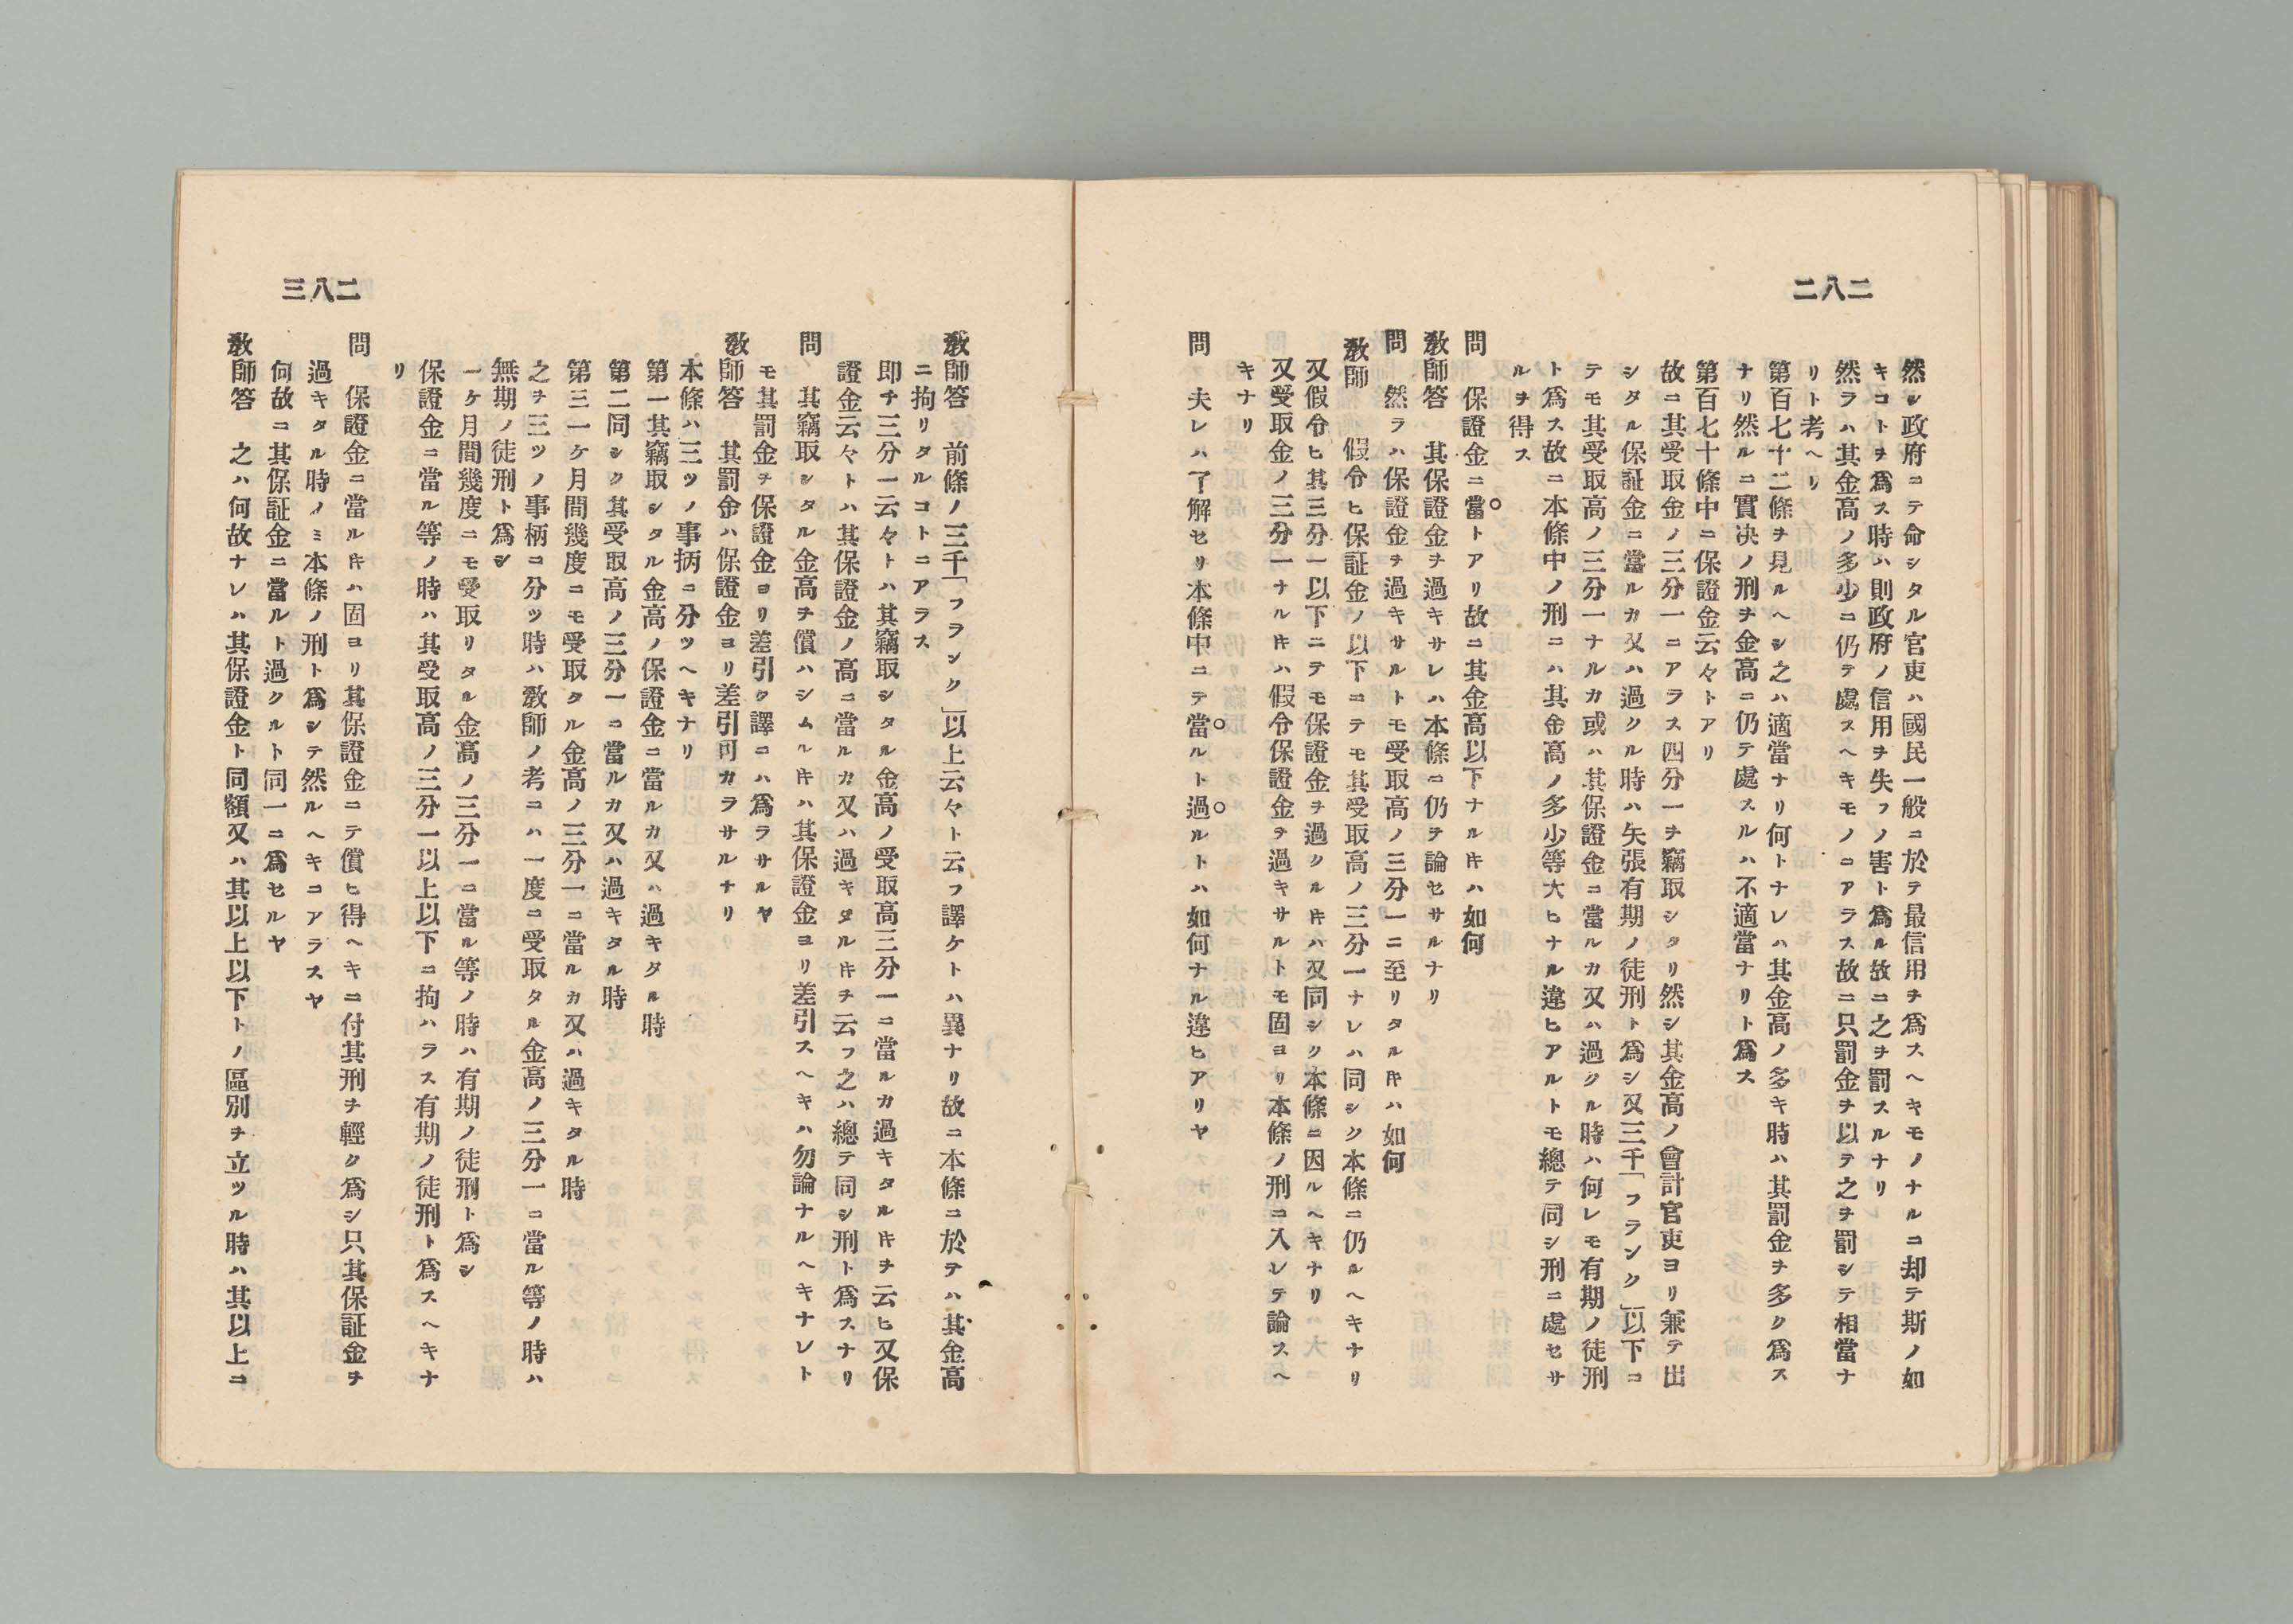 二八二
然シ政府ニテ命シタル官吏ハ國民一般ニ於テ最信用ヲ爲スヘキモノナルニ却テ斯ノ如
キコトヲ爲ス時ハ則政府ノ信用ヲ失フノ害ト爲ル故ニ之ヲ罰スルナリ
然ラハ其金高ノ多少ニ仍テ處スヘキモノニアラス故ニ只罰金ヲ以テ之ヲ罰シテ相當ナ
リト考ヘリ
第百七十二條ヲ見ルヘシ之ハ適當ナリ何トナレハ其金高ノ多キ時ハ其罰金ヲ多ク爲ス
ナリ然ルニ實决ノ刑ヲ金高ニ仍テ處スルハ不適當ナリト爲ス
第百七十條中ニ保證金云々トアリ
故ニ其受取金ノ三分一ニアラス四分一ヲ竊取シタリ然シ其金高ノ會計官吏ヨリ兼テ出
シタル保証金ニ當ルカ又ハ過クル時ハ矢張有期ノ徒刑ト爲シ又三千「フランク」以下ニ
テモ其受取高ノ三分一ナルカ或ハ其保證金ニ當ルカ又ハ過クル時ハ何レモ有期ノ徒刑
ト爲ス故ニ本條中ノ刑ニハ其金高ノ多少等大ヒナル違ヒアルトモ總テ同シ刑ニ處セサ
ルヲ得ス
問　保證金ニ當トアリ故ニ其金高以下ナルキハ如何
敎師答　其保證金ヲ過キサレハ本條ニ仍テ論セサルナリ
問　然ラハ保證金ヲ過キサルトモ受取高ノ三分一ニ至リタルキハ如何
敎師　假令ヒ保証金ノ以下ニテモ其受取高ノ三分一ナレハ同シク本條ニ仍ルヘキナリ
又假令ヒ其三分一以下ニテモ保證金ヲ過クルキハ又同シク本條ニ因ルヘキナリ
又受取金ノ三分一ナルキハ假令保證金ヲ過キサルトモ固ヨリ本條ノ刑ニ入レテ論スヘ
キナリ
問　夫レハ了解セリ本條中ニテ當ルト過ルトハ如何ナル違ヒアリヤ
二八三
敎師答　前條ノ三千「フランク」以上云々ト云フ譯ケトハ異ナリ故ニ本條ニ於テハ其金高
ニ拘リタルコトニアラス
即チ三分一云々トハ其竊取シタル金高ノ受取高三分一ニ當ルカ過キタルキヲ云ヒ又保
證金云々トハ其保證金ノ高ニ當ルカ又ハ過キタルキヲ云フ之ハ總テ同シ刑ト爲スナリ
問　其竊取シタル金高ヲ償ハシムルキハ其保證金ヨリ差引スヘキハ勿論ナルヘキナレト
モ其罰金ヲ保證金ヨリ差引ク譯ニハ爲ラサルヤ
敎師答　其罰金ハ保證金ヨリ差引可カラサルナリ
本條ハ三ツノ事柄ニ分ツヘキナリ
第一其竊取シタル金高ノ保證金ニ當ルカ又ハ過キタル時
第二同シク其受取高ノ三分一ニ當ルカ又ハ過キタル時
第三一ケ月間幾度ニモ受取タル金高ノ三分一ニ當ルカ又ハ過キタル時
之ヲ三ツノ事柄ニ分ツ時ハ敎師ノ考ニハ一度ニ受取タル金高ノ三分一ニ當ル等ノ時ハ
無期ノ徒刑ト爲シ
一ケ月間幾度ニモ受取リタル金高ノ三分一ニ當ル等ノ時ハ有期ノ徒刑ト爲シ
保證金ニ當ル等ノ時ハ其受取高ノ三分一以上以下ニ拘ハラス有期ノ徒刑ト爲スヘキナ
リ
問　保證金ニ當ルキハ固ヨリ其保證金ニテ償ヒ得ヘキニ付其刑ヲ輕ク爲シ只其保証金ヲ
過キタル時ノミ本條ノ刑ト爲シテ然ルヘキニアラスヤ
何故ニ其保証金ニ當ルト過クルト同一ニ爲セルヤ
敎師答　之ハ何故ナレハ其保證金ト同額又ハ其以上以下トノ區別ヲ立ツル時ハ其以上ニ